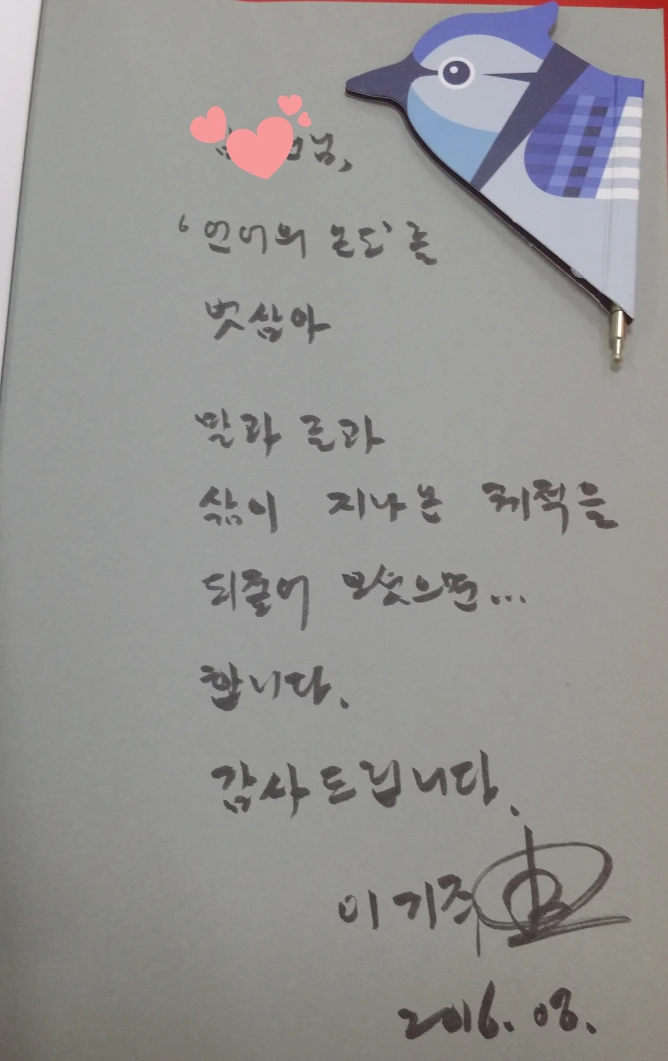 님,
'언어의 온도'를
벗삼아
말과 글과
삶이 지나온 궤적을
되돌아 보셨으면...
합니다.
감사드립니다.
이기주
2016. 08.